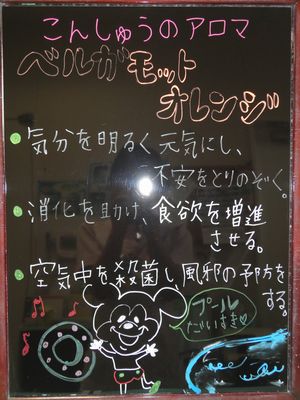 こんしゅうのアロマ
ベルガモット
オレンジ
気分を明るく元気にし、
不安をとりのぞく。
消化を助け、食欲を増進
させる。
空気中を殺菌し、風邪の予防を
する。
プール
だいすき♡